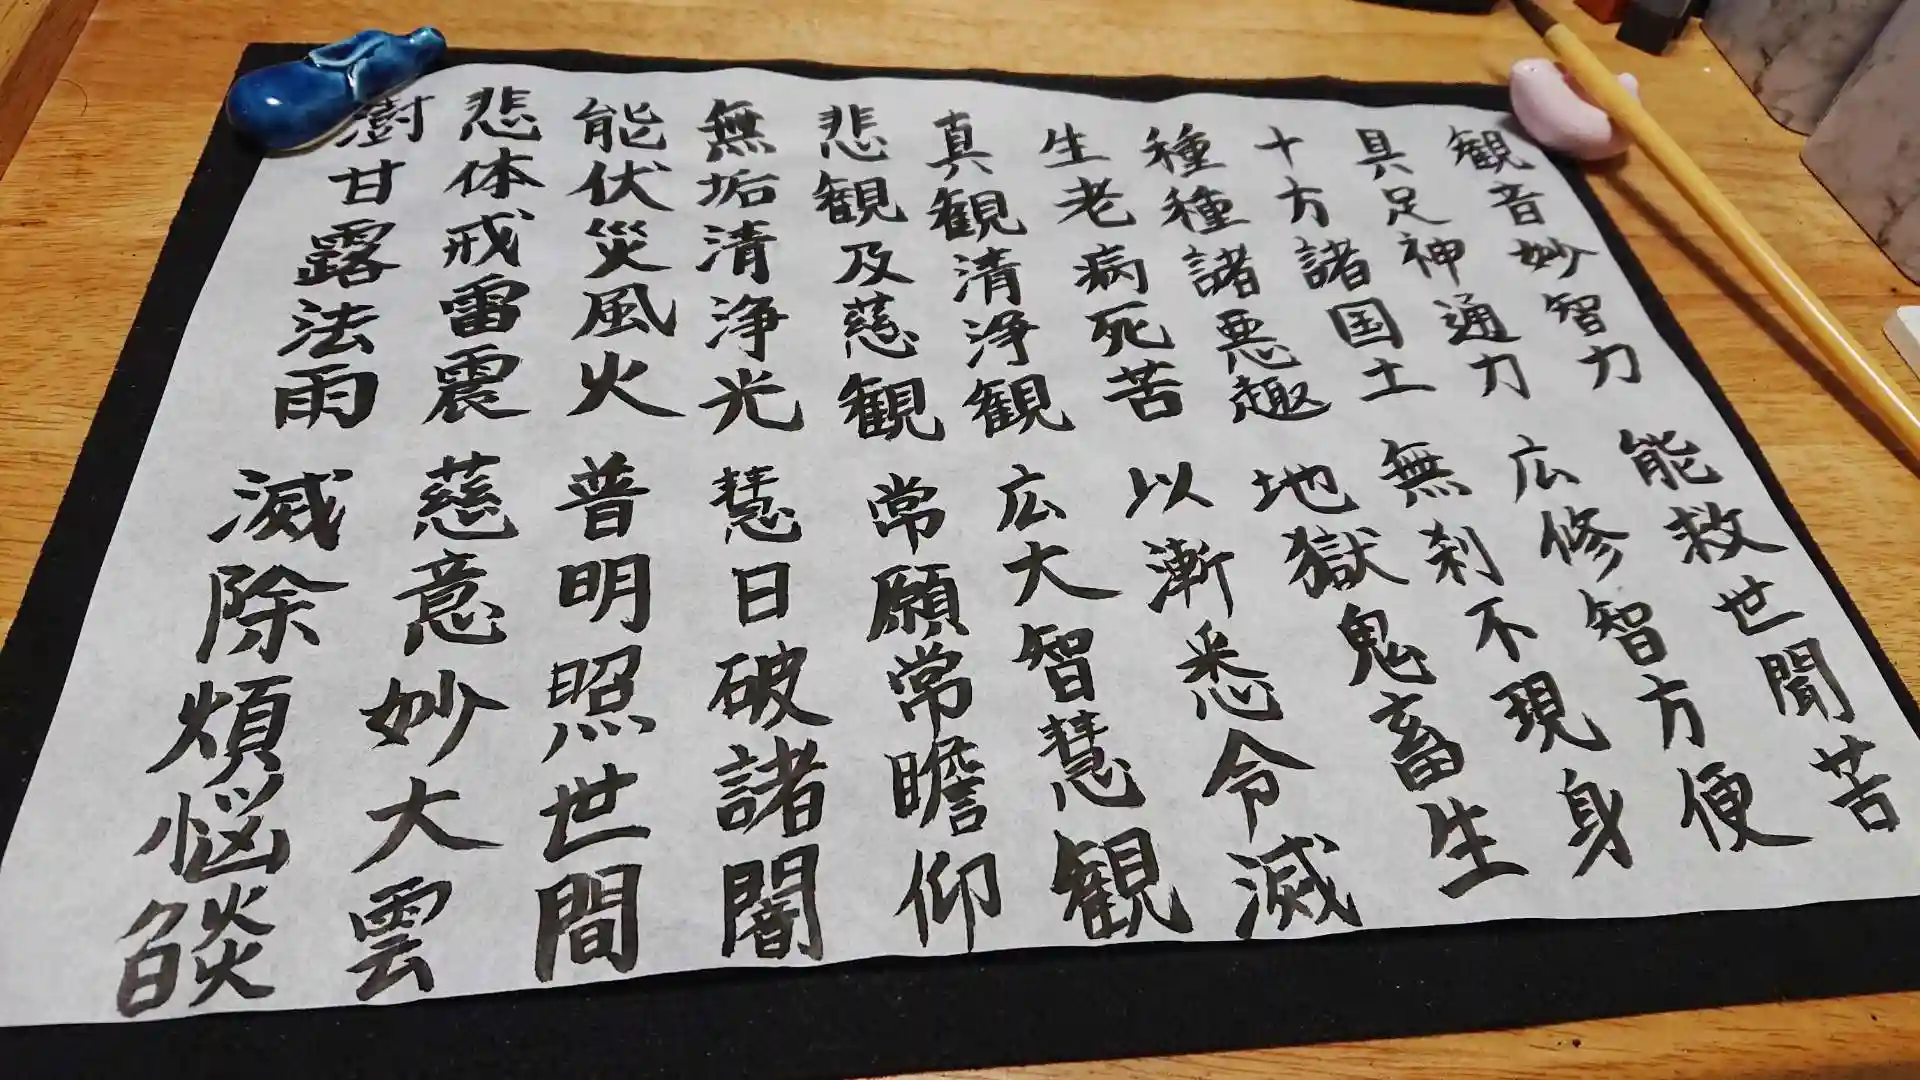 観音妙智力 能救世聞苦
具足神通力 広修智方便
十方諸国土 無刹不現身
種種諸悪趣 地獄鬼畜生
生老病死苦 以漸悉令滅
真観清浄観 広大智慧観
悲観及慈観 常願常瞻仰
無垢清浄光 慧日破諸闇
能伏災風火 普明照世間
悲体戒雷震 慈意妙大雲
澍甘露法雨 滅除煩悩燄